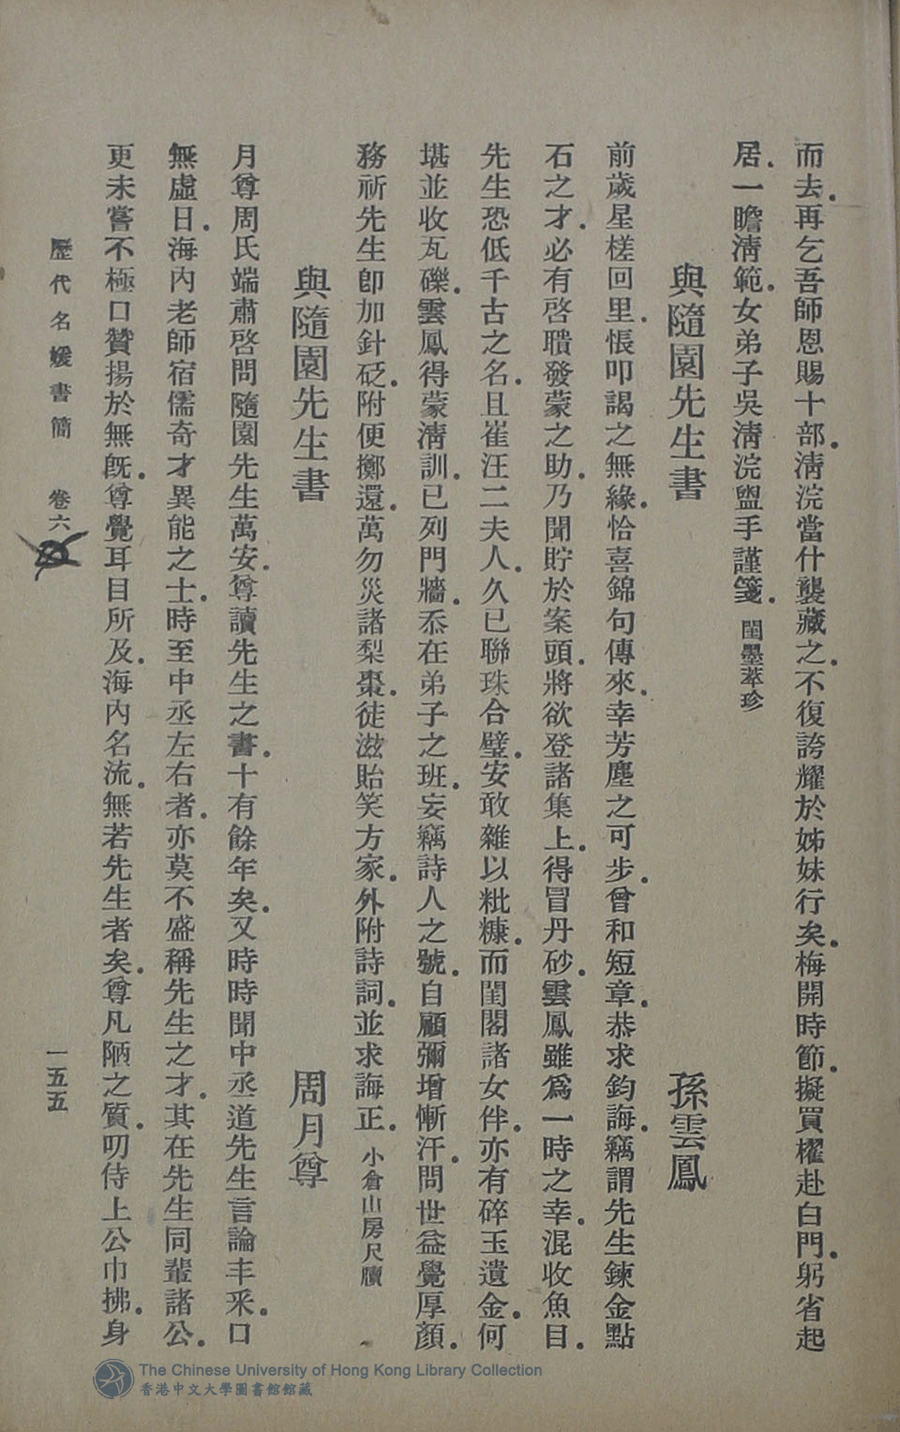 而去。再乞吾師恩賜十部。淸浣當什襲藏之。不復誇耀於姊妹行矣。梅開時節。擬買櫂赴白門。躬省起
居。一瞻淸範。女弟子吳淸浣盥手謹箋。 閨墨萃珍
與隨園先生書 孫雲鳳
前歲星槎回里。悵叩謁之無緣。恰喜錦句傳來。幸芳塵之可步。曾和短章。恭求鈞誨。竊謂先生鍊金點
石之才。必有啓聵發蒙之助。乃聞貯於案頭。將欲登諸集上。得冒丹砂。雲鳳雖爲一時之幸。混收魚目。
先生恐低千古之名。且崔汪二夫人。久已聯珠合璧。安敢雜以粃糠。而閨閣諸女伴。亦有碎玉遺金。何
堪並收瓦礫。雲鳳得蒙淸訓。已列門牆。忝在弟子之班。妄竊詩人之號。自顧彌增慚汗。問世益覺厚顏。
務祈先生卽加針砭。附便擲還。萬勿災諸梨棗。徒滋貽笑方家。外附詩詞。並求誨正。 小倉山房尺牘
與隨園先生書 周月尊
月尊周氏端肅啓問隨園先生萬安。尊讀先生之書。十有餘年矣。又時時聞中丞道先生言論丰采。口
無虛日。海內老師宿儒奇才異能之士。時至中丞左右者。亦莫不盛稱先生之才。其在先生同輩諸公。
更未嘗不極口贊揚於無旣。尊覺耳目所及。海內名流。無若先生者矣。尊凡陋之質。叨侍上公巾拂。身
歷代名媛書簡 卷六
一五五
The Chinese University of Hong Kong Library Collection
香港中文大學圖書館館藏